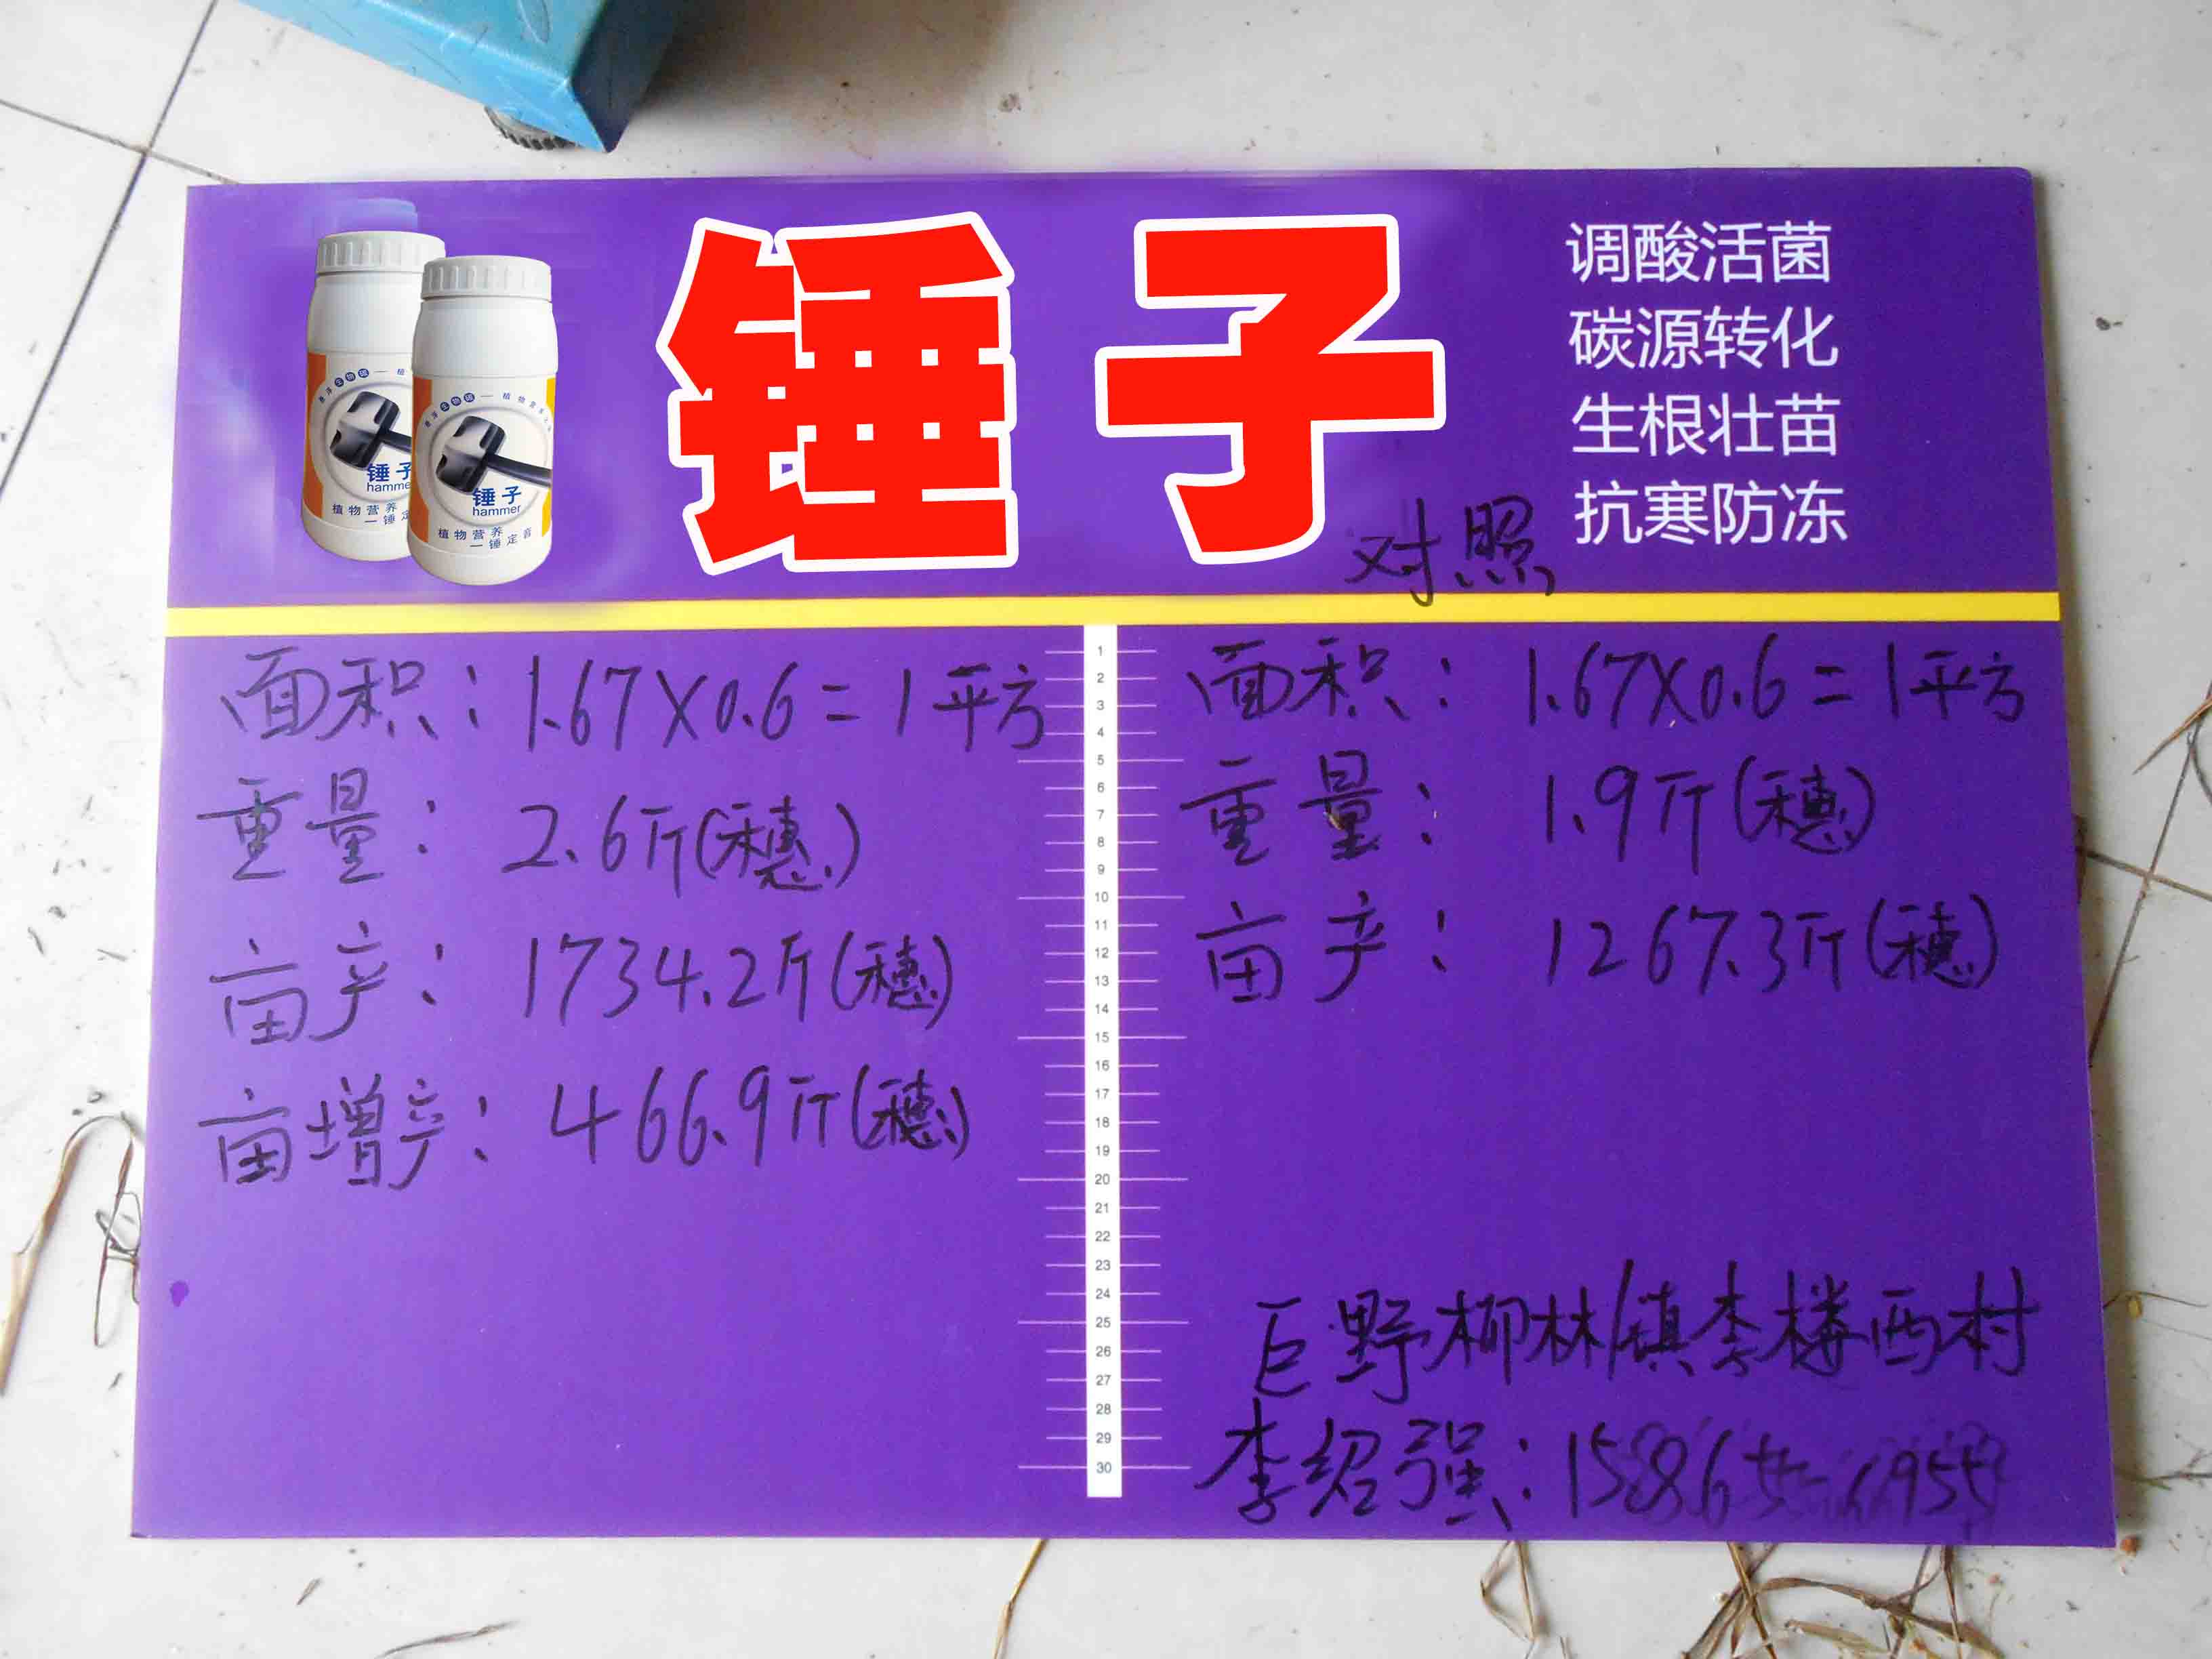 锤子
调酸活菌
碳源转化
生根壮苗
抗寒防冻
锤子
hammer
植物营养
一锤定音
锤子
hammer
植物营养
一锤定音
对照
面积：1.67X0.6=1平方
重量：2.6斤(穗)
亩产：1734.2斤(穗)
亩增产：466.9斤(穗)
1
2
3
4
5
6
7
8
9
10
11
12
13
14
15
16
17
18
19
20
21
22
23
24
25
26
27
28
29
30
面积：1.67X0.6=1平方
重量：1.9斤(穗)
亩产：1267.3斤(穗)
巨野柳林镇李楼西村
李绍强：